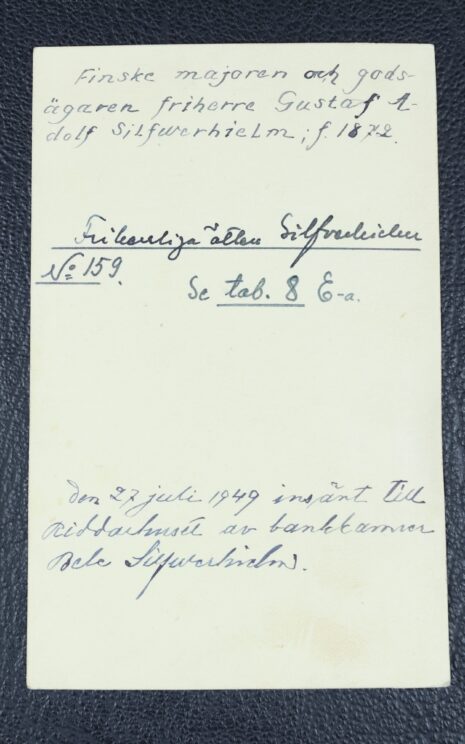 Finske majoren och gods-
ägaren friherre Gustaf A-
dolf Silfwerhielm; f. 1872.
Friherrliga ätten Silfverhielm
No 159.
Se tab. 8 E-a.
Den 27 juli 1949 insänt till
Riddarhuset av bankkamrer
Bele Silfwerhielm.